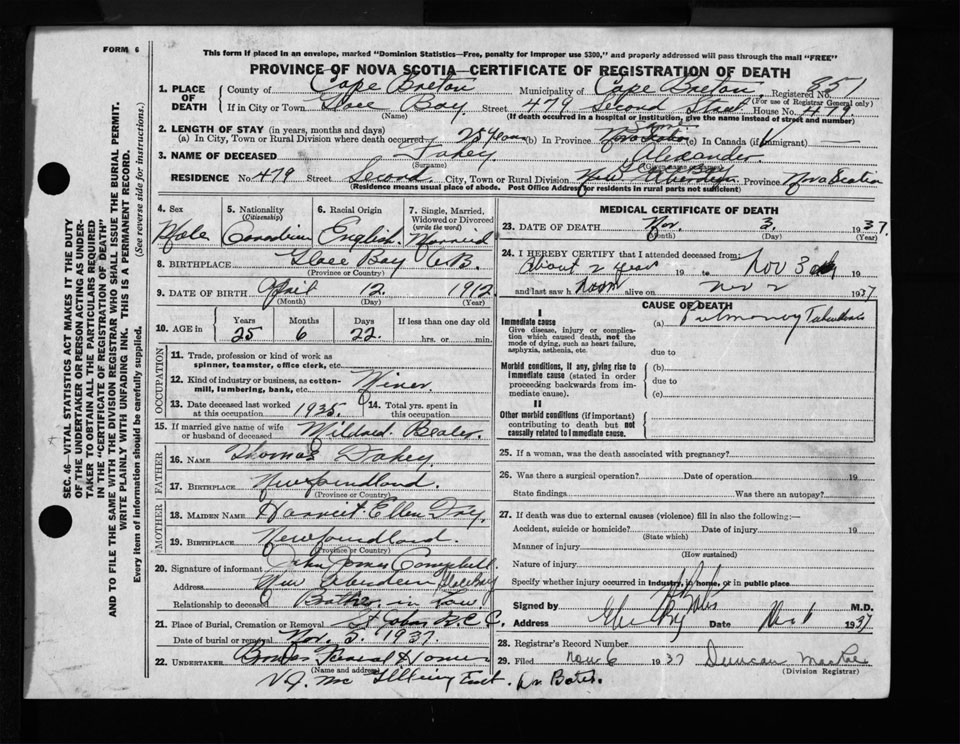 FORM 6
This form if placed in an envelope, marked "Dominion Statistics—Free, penalty for improper use $300," and properly addressed will pass through the mail "FREE"
PROVINCE OF NOVA SCOTIA—CERTIFICATE OF REGISTRATION OF DEATH
1. PLACE OF DEATH
County of Cape Breton Municipality of Cape Breton Registered No. 851
(For use of Registrar General only)
If in City or Town Glace Bay Street 479 Second Street House No. 479
(Name) (If death occurred in a hospital or institution, give the name instead of street and number)
2. LENGTH OF STAY (in years, months and days)
(a) In City, Town or Rural Division where death occurred 25 Years (b) In Province Nova Scotia (c) In Canada (if immigrant)
3. NAME OF DECEASED Fahey Alexander
(Surname)
RESIDENCE No. 479 Street Second City, Town or Rural Division New Aberdeen Province Nova Scotia
(Residence means usual place of abode. Post Office Address for residents in rural parts not sufficient)
4. Sex Male
5. Nationality (Citizenship) Canadian
6. Racial Origin English
7. Single, Married, Widowed or Divorced (write the word) Married
8. BIRTHPLACE Glace Bay C.B.
(Province or Country)
9. DATE OF BIRTH April 12 1912
(Month) (Day) (Year)
10. AGE in Years 25 Months 6 Days 22 If less than one day old
hrs. or min.
OCCUPATION
11. Trade, profession or kind of work as spinner, teamster, office clerk, etc.
12. Kind of industry or business, as cotton-mill, lumbering, bank, etc. Miner
13. Date deceased last worked at this occupation 1935. 14. Total yrs. spent in this occupation
15. If married give name of wife or husband of deceased Mildred
FATHER
16. NAME Thomas Fahey
17. BIRTHPLACE Newfoundland
(Province or Country)
MOTHER
18. MAIDEN NAME Harriet Ellen
19. BIRTHPLACE Newfoundland.
(Province or Country)
20. Signature of informant John James Campbell
Address New Aberdeen Glace Bay
Relationship to deceased Brother in Law.
21. Place of Burial, Cremation or Removal St John
Date of burial or removal Nov. 5. 1937.
22. UNDERTAKER Funeral Home
(Name and address)
V.J. Mc
MEDICAL CERTIFICATE OF DEATH
23. DATE OF DEATH Nov. 3. 1937.
(Month) (Day) (Year)
24. I HEREBY CERTIFY that I attended deceased from:
About 2 year 19 to Nov 3 19
and last saw h alive on Nov 2 1937
CAUSE OF DEATH
I
Immediate cause
Give disease, injury or complication which caused death, not the mode of dying, such as heart failure, asphyxia, asthenia, etc.
(a) Pulmonary Tuberculosis
due to
Morbid conditions, if any, giving rise to immediate cause (stated in order proceeding backwards from immediate cause).
(b)
due to
(c)
II
Other morbid conditions (if important) contributing to death but not causally related to immediate cause.
25. If a woman, was the death associated with pregnancy?
26. Was there a surgical operation? Date of operation 19
State findings Was there an autopsy?
27. If death was due to external causes (violence) fill in also the following:—
Accident, suicide or homicide? Date of injury 19
(State which)
Manner of injury
(How sustained)
Nature of injury
Specify whether injury occurred in industry, in home, or in public place
Signed by M.D.
Address Glace Bay Date Nov 6 1937
28. Registrar's Record Number
29. Filed Nov 6 1937 Duncan
(Division Registrar)
SEC. 46—VITAL STATISTICS ACT MAKES IT THE DUTY OF THE UNDERTAKER OR PERSON ACTING AS UNDERTAKER TO OBTAIN ALL THE PARTICULARS REQUIRED IN THE "CERTIFICATE OF REGISTRATION OF DEATH" AND TO FILE THE SAME WITH THE DIVISION REGISTRAR WHO SHALL ISSUE THE BURIAL PERMIT.
WRITE PLAINLY WITH UNFADING INK. THIS IS A PERMANENT RECORD.
Every item of information should be carefully supplied. (See reverse side for instructions.)